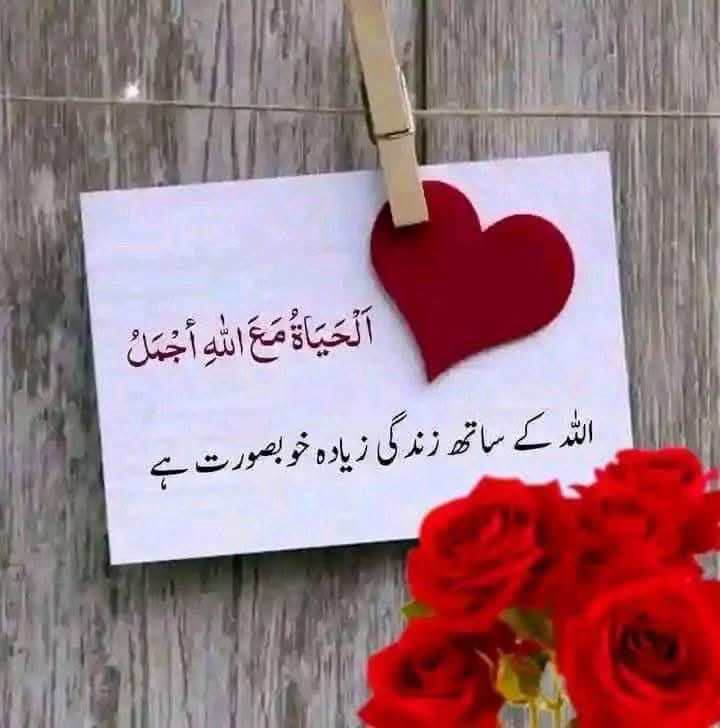 اَلْحَيَاةُ مَعَ اللّٰهِ أجْمَلُ
اللہ کے ساتھ زندگی زیادہ خوبصورت ہے